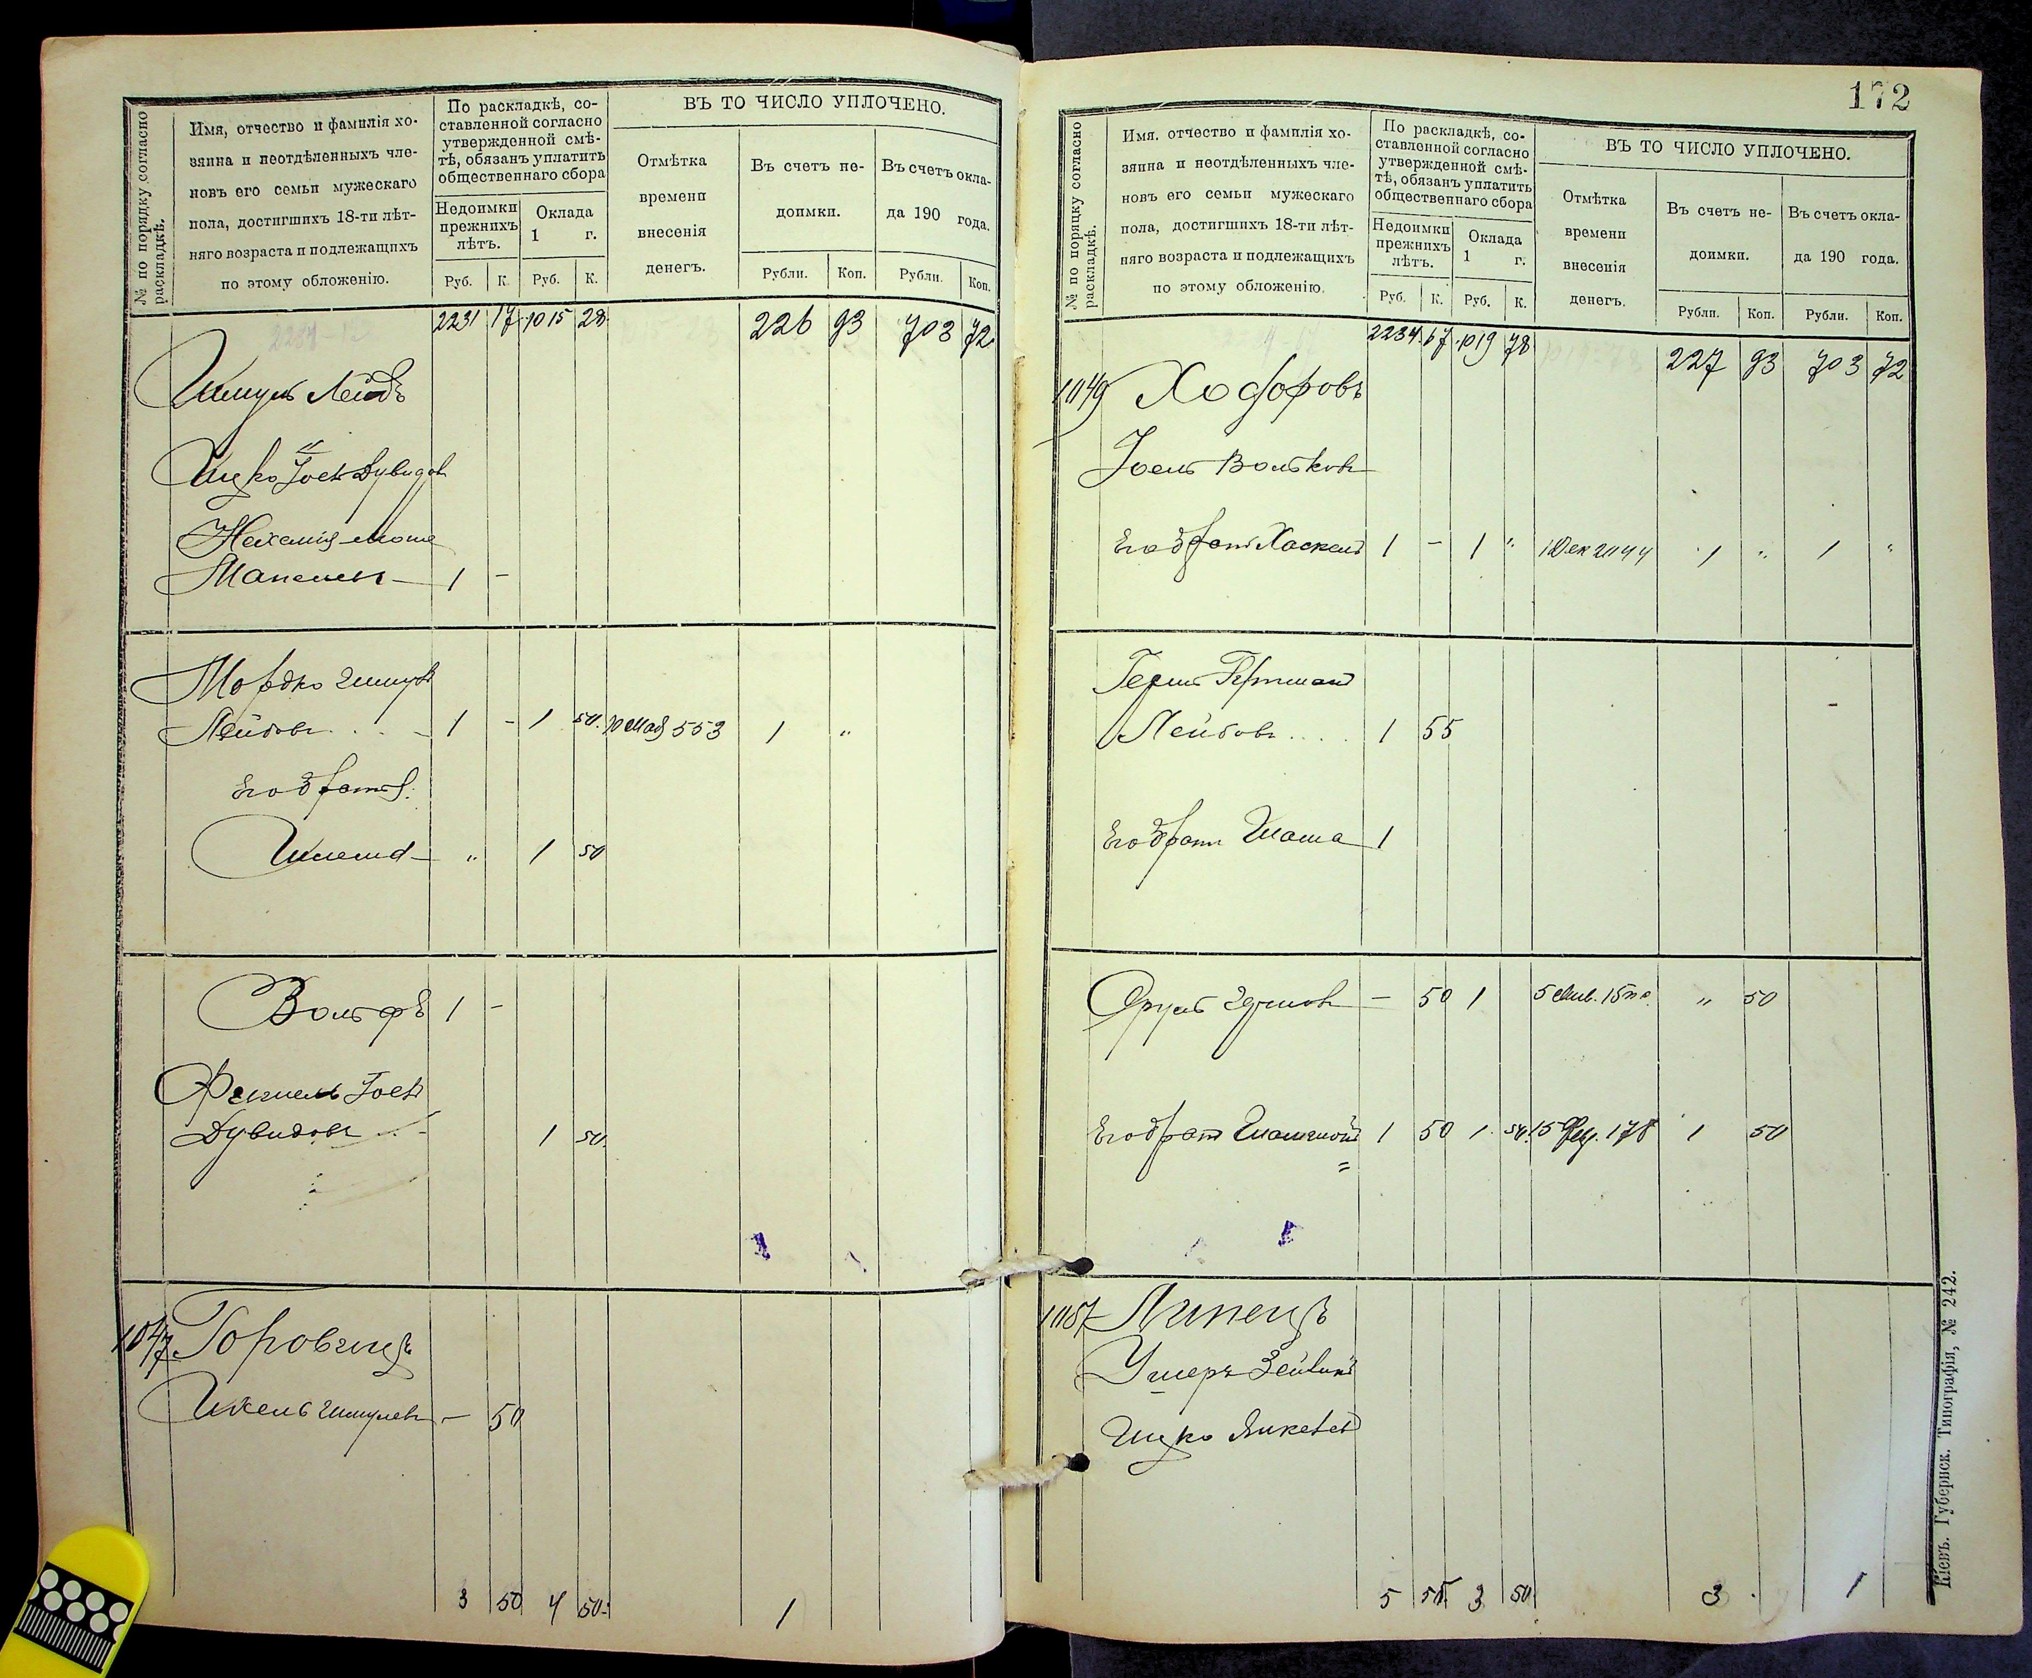 № по порядку согласно раскладкѣ.
Имя, отчество и фамилія хо-
зяина и неотдѣленныхъ чле-
новъ его семьи мужескаго
пола, достигшихъ 18-ти лѣт-
няго возраста и подлежащихъ
по этому обложенію.
По раскладкѣ, со-
ставленной согласно
утвержденной смѣ-
тѣ, обязанъ уплатить
общественнаго сбора
Недоимки
прежнихъ
лѣтъ.
Оклада
1 г.
Руб. К. Руб. К.
ВЪ ТО ЧИСЛО УПЛОЧЕНО.
Отмѣтка
времени
внесенія
денегъ.
Въ счетъ не-
доимки.
Въ счетъ окла-
да 190 года.
Рубли. Коп. Рубли. Коп.
2231 17 1015 28 226 93 703 72
Шмуль Лейбъ
Ицко Іось Дувидов
Нехемія Моше
1 -
Мордко Шмул
Лейбовъ 1 - 1 50. 10 Мая 553 1 "
Его братья:
" 1 50
Вольфъ 1 -
Іось
Дувидовъ 1 50.
1047 Горовицъ
Шмулев - 50
3 50 4 50 1
172
№ по порядку согласно раскладкѣ.
Имя. отчество и фамилія хо-
зяина и неотдѣленныхъ чле-
новъ его семьи мужескаго
пола, достигшихъ 18-ти лѣт-
няго возраста и подлежащихъ
по этому обложенію.
По раскладкѣ, со-
ставленной согласно
утвержденной смѣ-
тѣ, обязанъ уплатить
общественнаго сбора
Недоимки
прежнихъ
лѣтъ.
Оклада
1 г.
Руб. К. Руб. К.
ВЪ ТО ЧИСЛО УПЛОЧЕНО.
Отмѣтка
времени
внесенія
денегъ.
Въ счетъ не-
доимки.
Въ счетъ окла-
да 190 года.
Рубли. Коп. Рубли. Коп.
2234 67 1019 78 227 93 703 72
1049 Ходоровъ
Іось Вольков
Его братъ Хаскель 1 - 1 " 1 Дек 2044 1 " 1 "
Герш
Лейбовъ 1 55
Его братъ 1
Сруль - 50 1 " 50
Его братъ 1 50 1 50 15 178 1 50
1057 Липецъ
Ушеръ Зейлик
Ицко
5 55 3 50 3 1
Кіевъ. Губернск. Типографія, № 242.